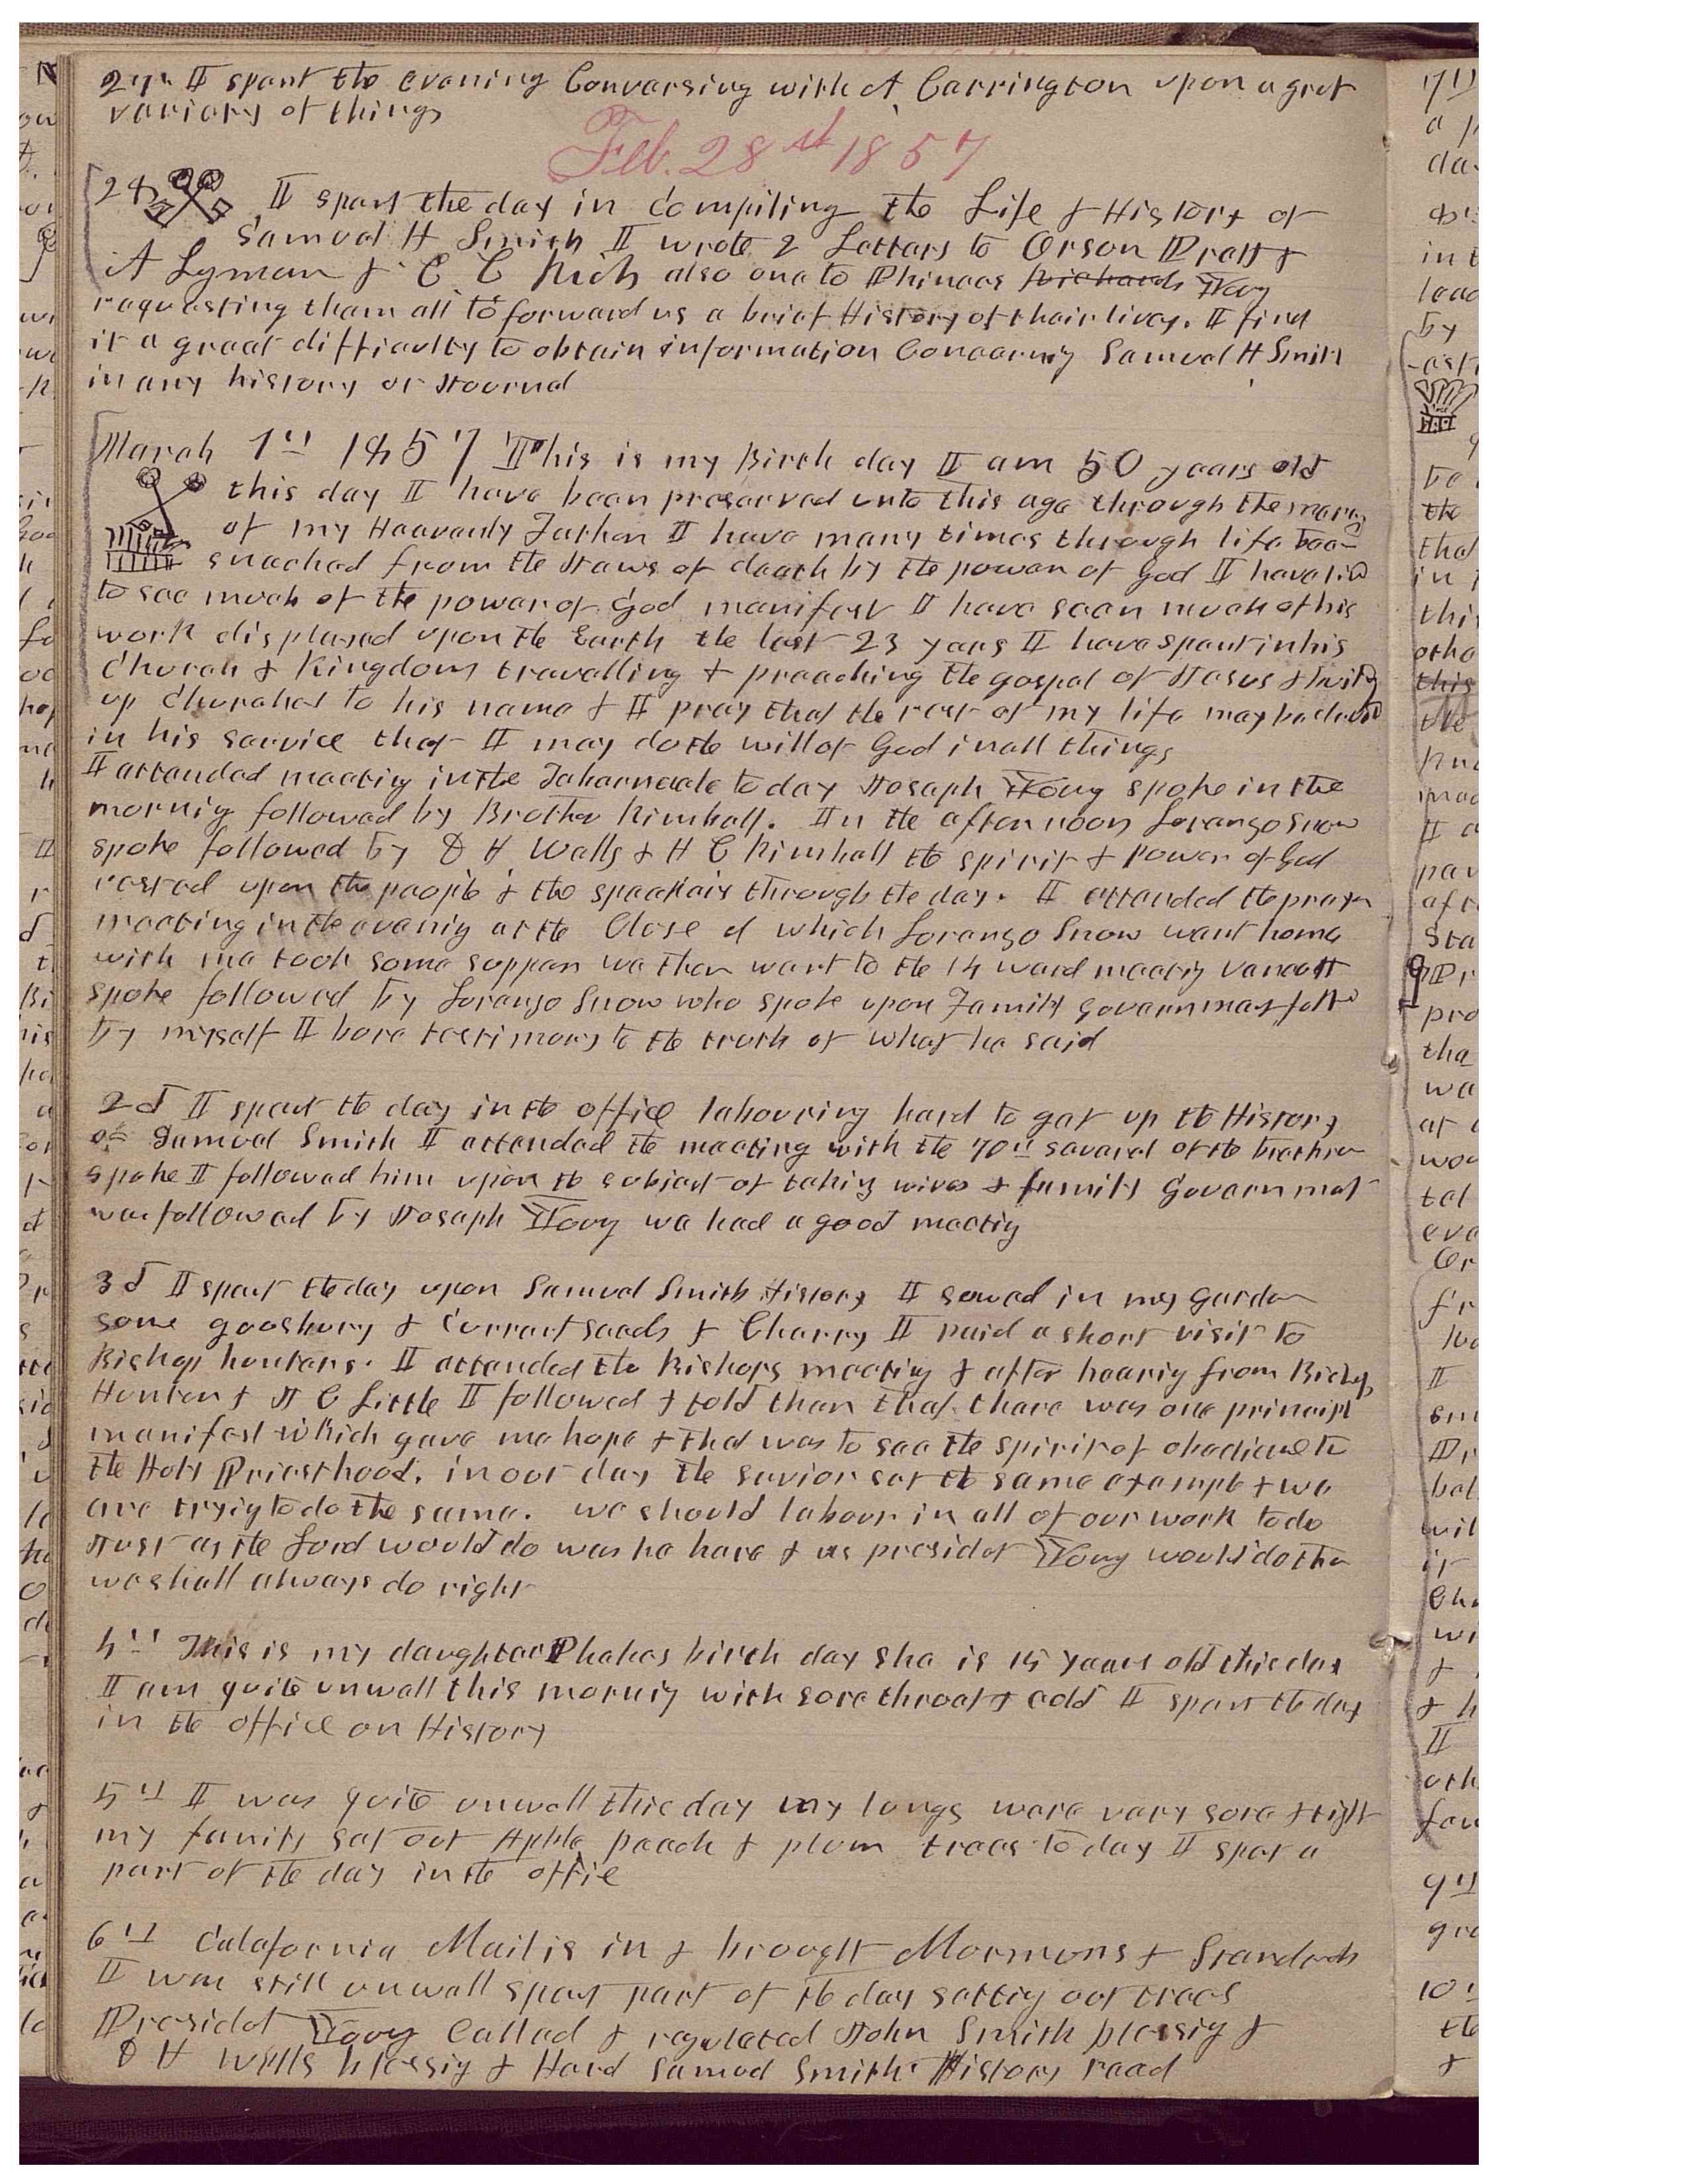 27th I spent the evening Conversing with A. Carrington upon a gret
variety of things
Feb. 28st 1857
28 I spent the day in compiling the Life & History of
Samuel H Smith I wrote 2 Letters to Orson Pratt &
A Lyman & C. C. Rich also one to Phineas Richards Young
requesting them all to forward us a brief History of their lives. I find
it a great difficulty to obtain information Concerning Samuel H Smith
in any history or Journal
March 1st 1857 This is my Birth day I am 50 years old
this day I have been preserved unto this age through the mercy
of my Heavenly Father I have many times through life been
snached from the Jaws of death by the power of God I have livd
to see much of the power of God manifest I have seen much of his
work displayed upon the Earth the last 23 years I have spent in his
Church & Kingdom travelling & preaching the gospel of Jesus & building
up Churches to his name & I pray that the rest of my life may be
in his service that I may do the will of God in all things
I attended meeting in the Tabernacle to day Joseph Young spoke in the
mornig followed by Brother Kimball. In the afternoon Lorenzo Snow
spoke followed by D H Wells & H C Kimball the spirit & Power of God
rested upon the people & the speakers through the day. I attended the prayer
meeting in the evenig at the Close of which Lorenzo Snow went home
with me took some supper we then went to the 14 ward meetig Vancott
spoke followed by Lorenzo Snow who spoke upon Family government folld
by myself I bore testimony to the truth of what he said
2d I spent the day in the office labouring hard to get up the History
of Samuel Smith I attended the meeting with the 70th several of the brethren
spoke I followed him upon the subject of takig wives & family Governmet
was followed by Joseph Young we had a good meetig
3d I spent the day upon Samuel Smith History I sowed in my garden
some goosbury & Currant seeds & Cherry I paid a short visit to
Bishop hunters. I attended the Bishops meetig & after hearig from Bishop
Hunter & J C Little I followed & told them that there was one principl
manifest which gave me hope & that was to see the spirit of obedience to
the Holy Priesthood. in our day the savior set the same exampl & we
are tryig to do the same. we should labour in all of our work to do
Just as the Lord would do was he here & as presidet Young would do then
we shall always do right
4th This is my daughter Phebes birth day she is 15 years old this day
I am quite unwell this mornig with sore throat & cold I spent the day
in the office on History
5th I was quite unwell this day my lungs were very sore & tight
my family set out Apple peach & plum trees to day I spet a
part of the day in the offie
6th Calafornia Mail is in & brought Mormons & Standards
I was still unwell spent part of the day settig out trees
Presidet Young Called & regulated John Smith blessig &
D H Wells blessig & Hard Samuel Smith History read